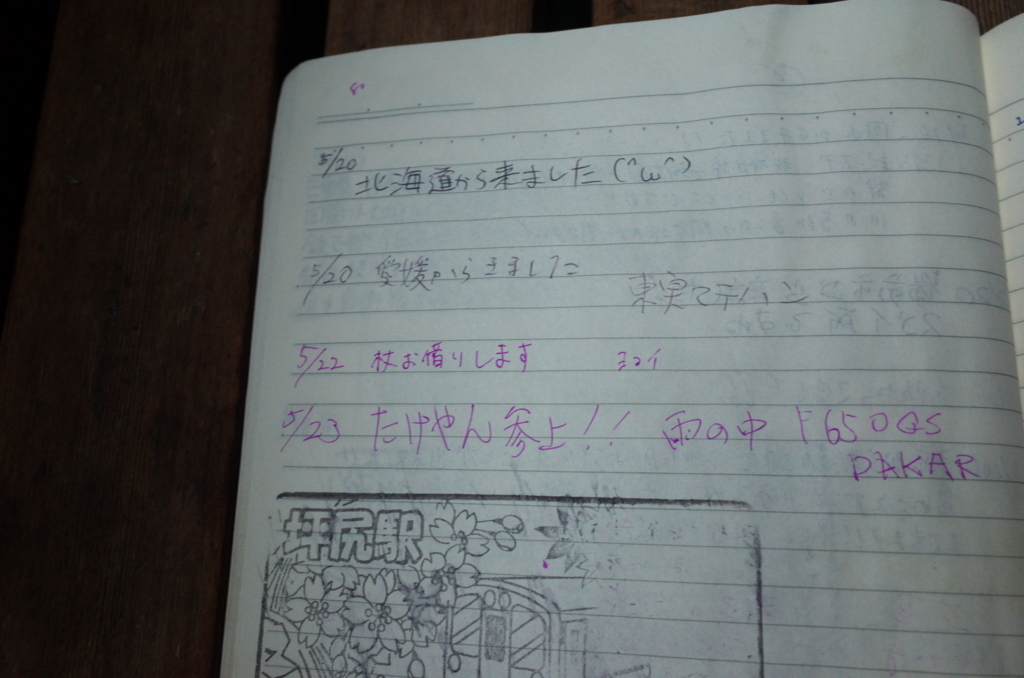 5/20
北海道から来ました(^ω^)
5/20 愛媛からきました
5/22 杖お借りします
5/23 たけやん参上!! 雨の中 F650GS
DAKAR
坪尻駅